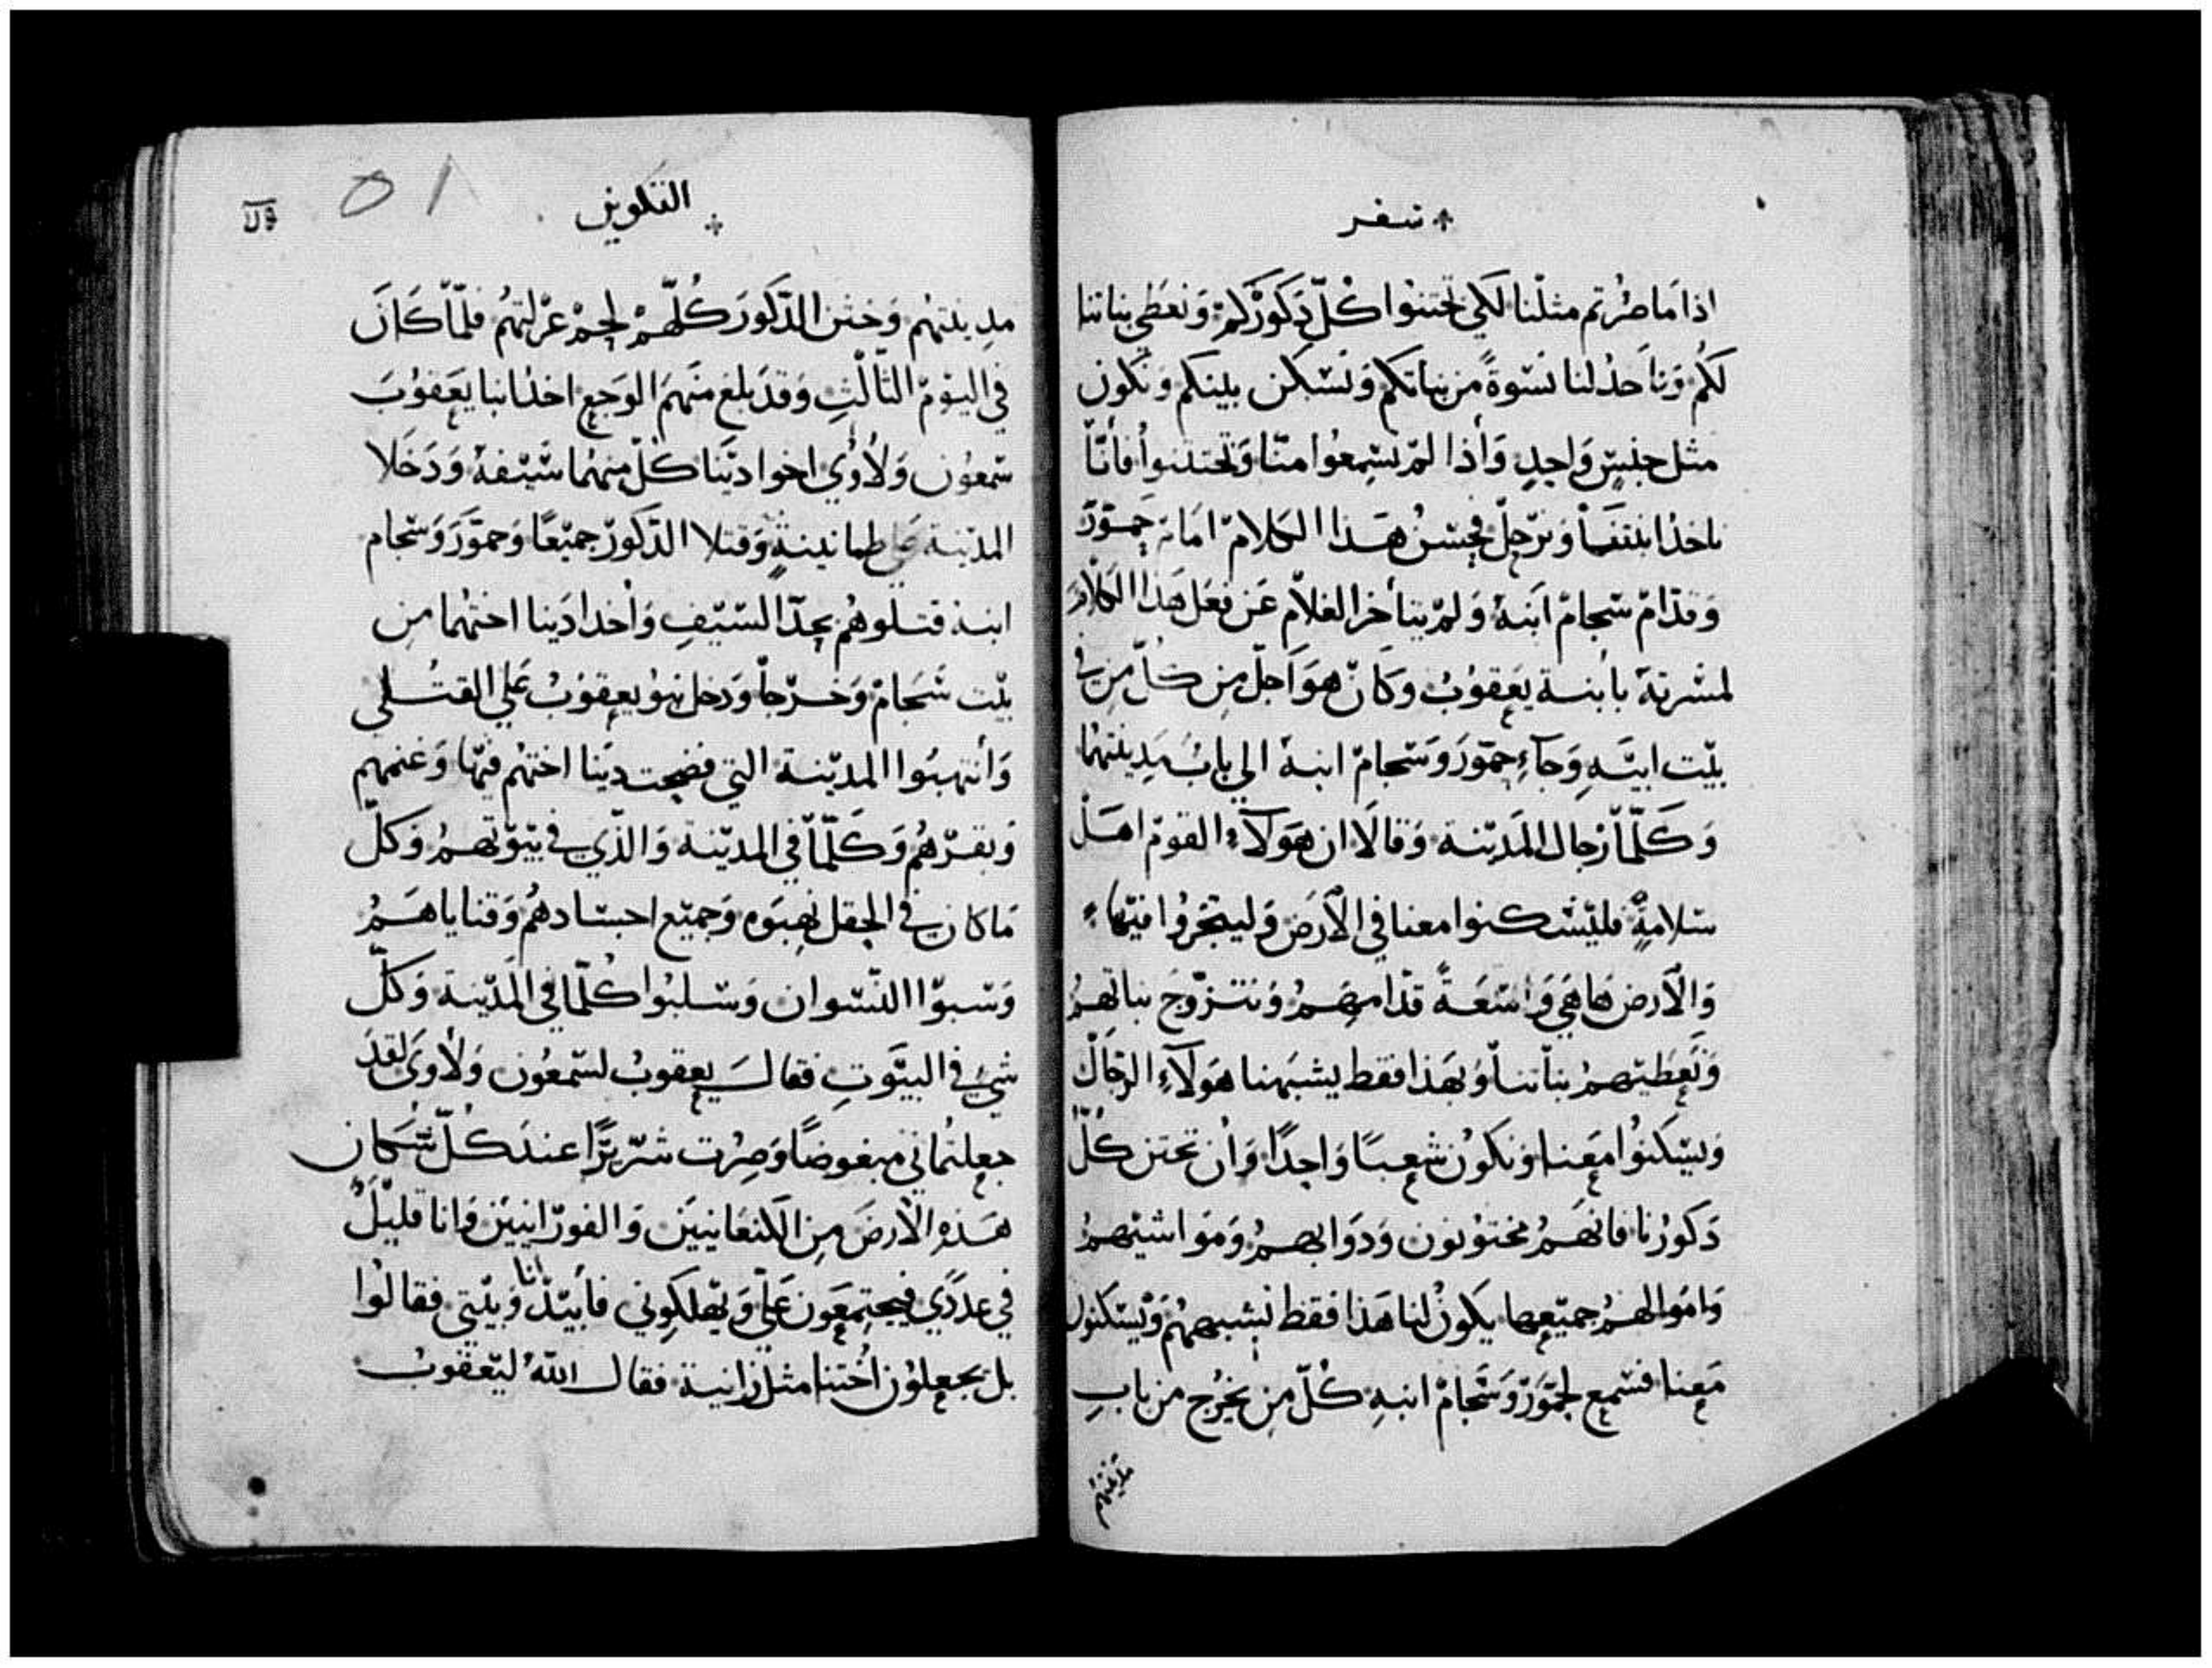 سفر
اذا مَا صُرتم مثلنا لكي تختنوا كُلّ ذكوركم وَنعَطي بناتنا
لكُم وَناخذ لنا نسْوةً من بناتكم وَنسْكن بينكم وَنكون
مثل جنسٍ وَاحدٍ وَأذا لمْ تسْمعُوا منّا وَتختتنوا فأنّا
ناخذ ابنتنا وَنرحل فحسُن هَذا الكلامْ امَام حمّورَ
وَقدّامْ سْجامْ ابنهُ وَلمْ يتأخر الغلاّم عَن فعَل هَذا الكلامْ
لمسْرته بابنة يعَقوُبْ وكَانْ هوَ اجلّ من كُلّ من في
بيْت ابيَّهِ وَجآءِ حمّورَ وَسْجامْ ابنهُ الي بابْ مَدينتهُمْا
وَكَلّما رجال المَديْنة وَقالاَ ان هَوَلآءِ القومْ اهَل
سْلامةٍ فليْسْكنوا معنا في الأرَض وَليتجروُا فيْها
وَالأرض هَا هَي وَاسْعَةً قدّامهَمُ وَنتزوّجَ بناتهمُ
وَنعَطيْهمُ بناتنا وَبهَذا فقط يشبَهنا هَوَلآءِ الرجَالْ
وَيسْكنُوا مَعنا وَنكوُن شعبًا وَاحدًا وَان تختن كُلّ
ذكورُنا فانهَمُ مختوُنون وَدوَابهمُ وَموَاشيْهمُ
وَاموَالهمُ جميْعها يكونُ لنا هَذا فقط نشبههُمْ وَيْسْكنوا
مَعنا فسْمع لحمّورَ وَسْجامْ ابنهِ كُلّ مِن يخرُج من بابِ
مدينتهم
التكوين
قلا
51
مدِينتهُم وَختن الذكورَ كُلّهمْ لحمْ غرلتهُم فلمّا كَانَ
في اليوْم الثالْثِ وَقدَ بلغ منهَم الوَجعِ اخذ ابنا يعَقوُبَ
سْمعوُن وَلاوُي اخوا ديْنا كُلّ منهمُا سْيفهُ وَدَخَلا
المديْنة علي طمانينةٍ وَقتلا الذكورَ جميْعًا وَحمّورَ وَسْجام
ابنه قتلوهُم بحدّ السْيْفِ وَأخذا دَينا اختهُما من
بيْت سْجَامْ وَخرْجاْ وَدخل بنوُ يعقوُبُ عَلي القتلي
وَأنتهبَوا المديْنة التي فضحت ديَنا اختهُم فيْها وَغنمهم
وَبقرْهُم وَكَلّما في المديْنة وَالذّي في بيْوتهمُ وَكلّ
مَا كان في الحقل نهبَوه وَجميْع اجسْادهُم وَقناياهَمُ
وَسْبوْا النسْوان وَسْلبُوا كُلّما في المَديْنة وَكلّ
شيْ في البيوَتِ فقال يعقوبُ لسْمعُون وَلاوَي لقدَ
جعلتُماني مبغوضًا وَصِرْت شرّيرًا عندَ كُلّ سْكَان
هَذهِ الأرضَ مِن الكنعَانييَن وَالفورْانييَن وَانا قليْلُ
في عددَي فيجتمعَون عَليّ وَيهْلكوني فأبيْد انا وَبيْتي فقالوُا
بل يجعلوُن اُختنا مثل زانية فقال اللّهُ ليْعقوبُ